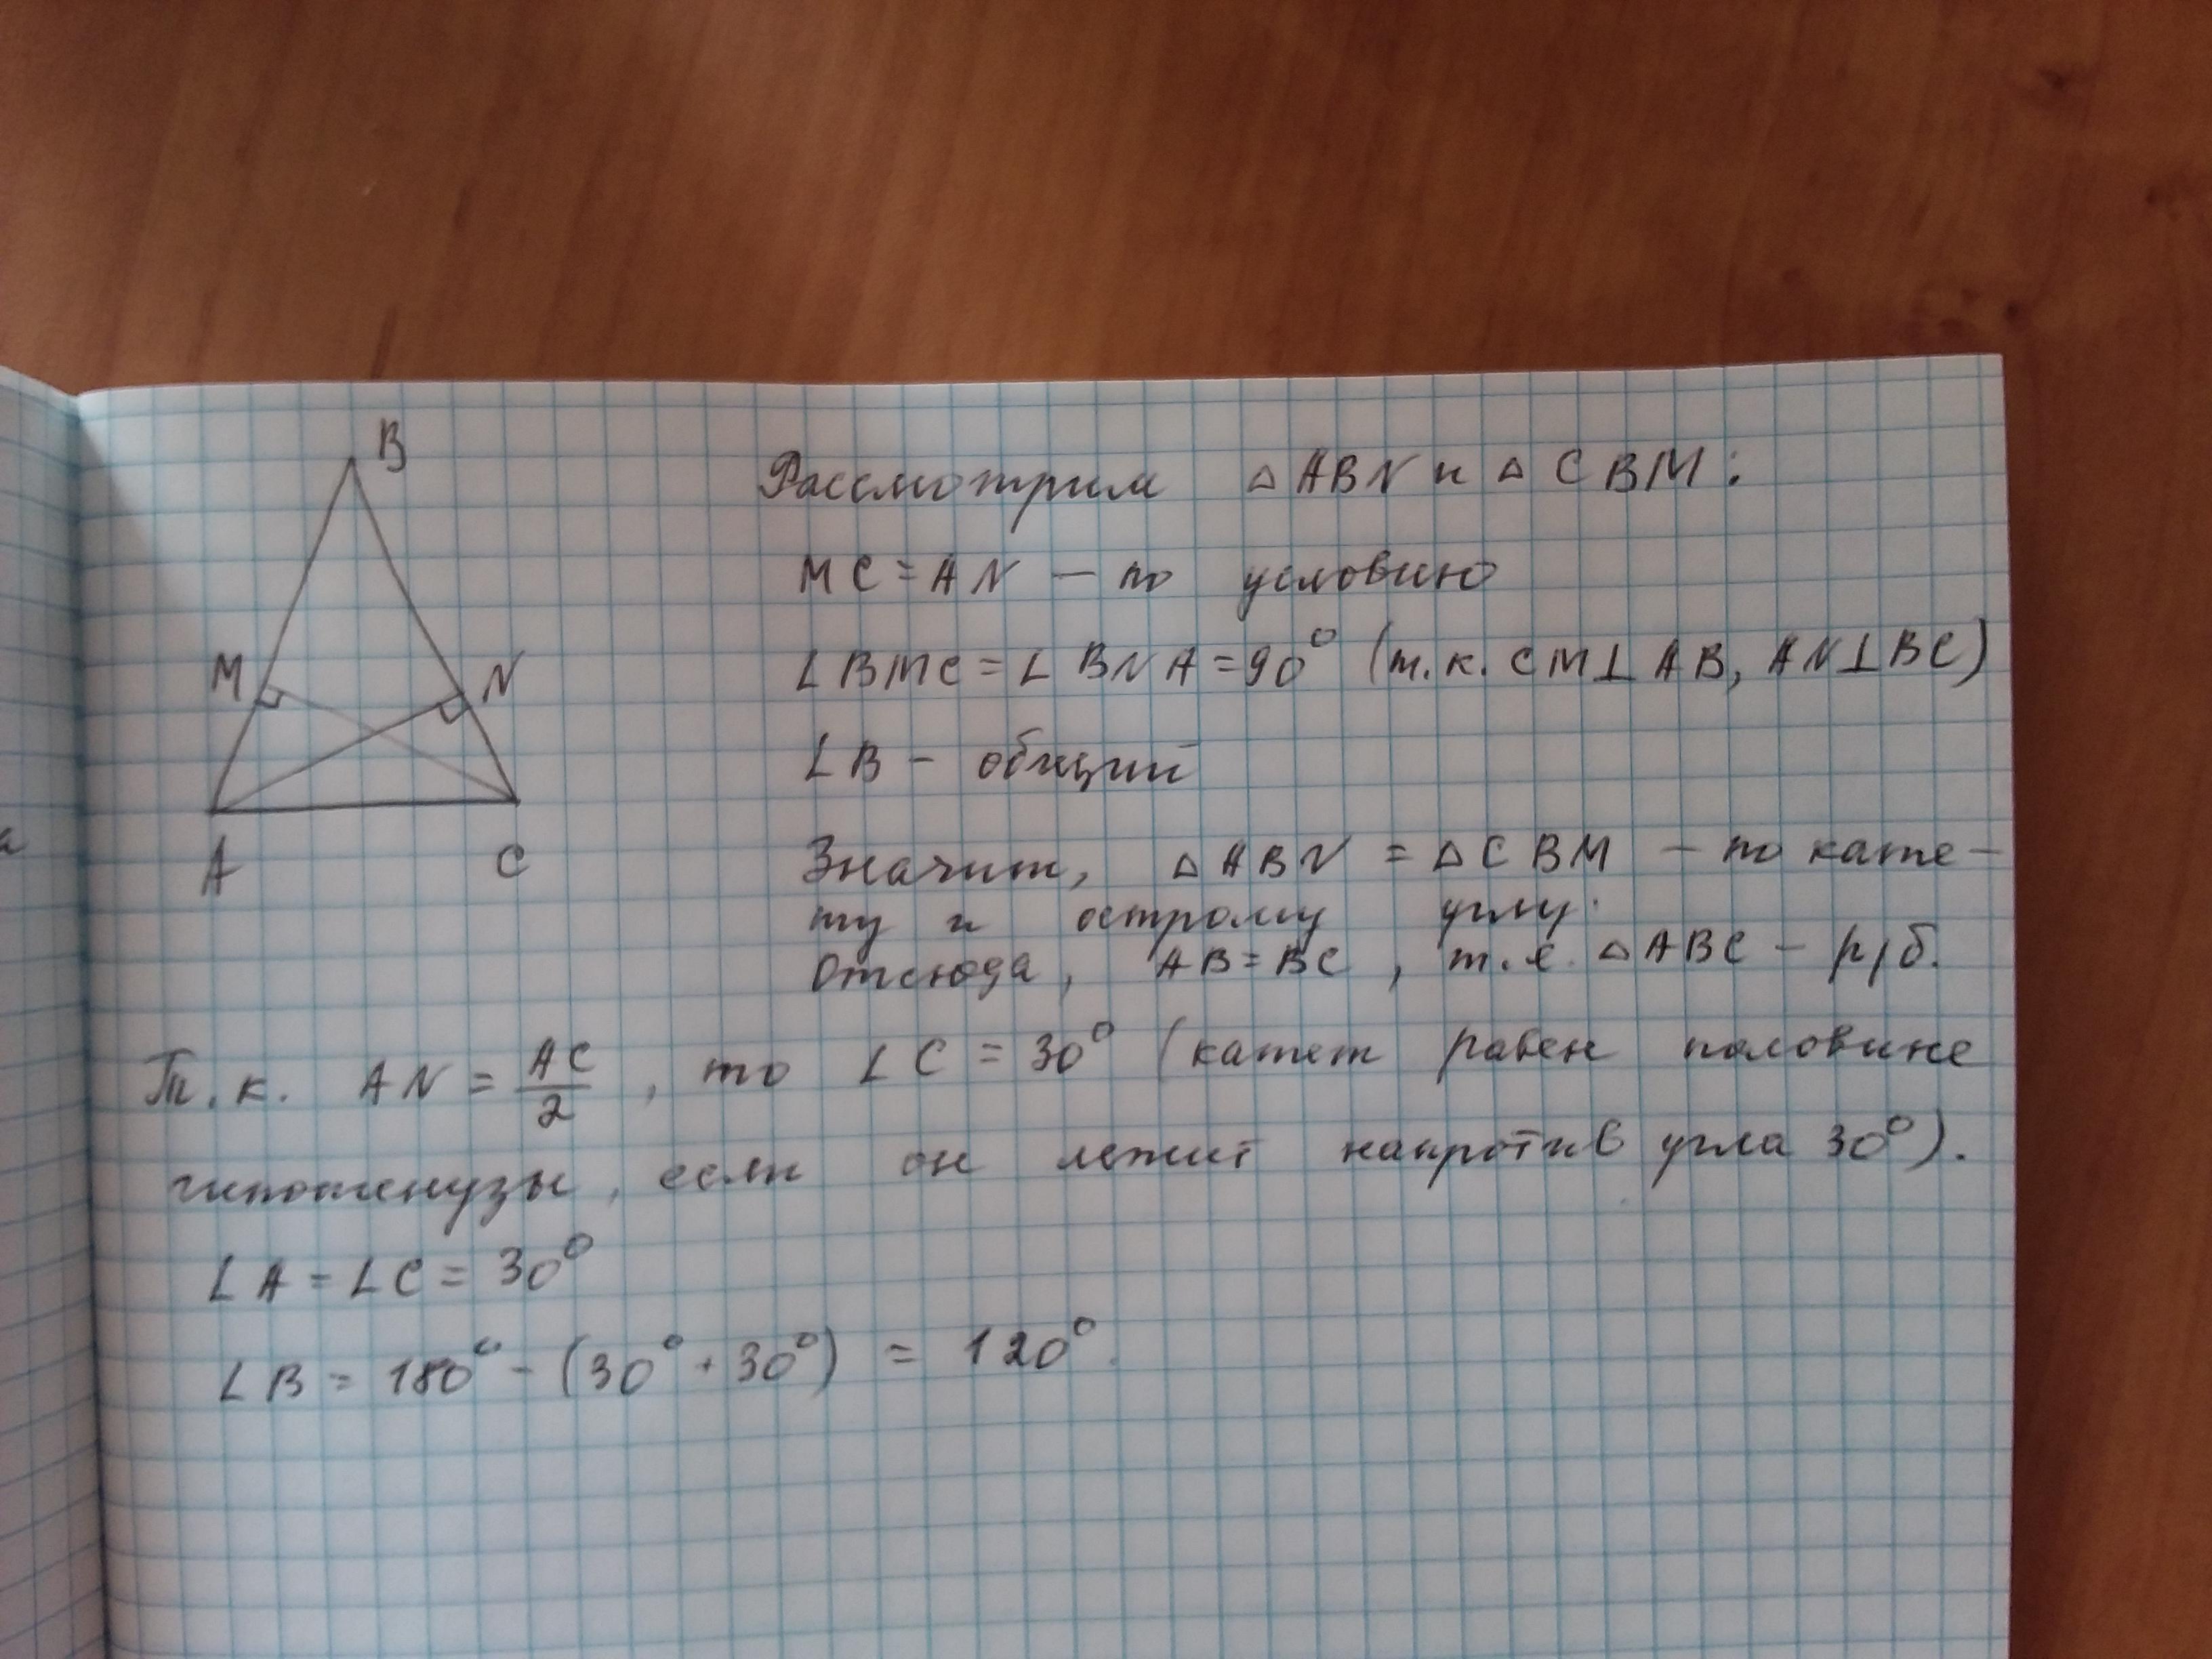 B
M
N
A
C
Рассмотрим △ABN и △CBM:
MC = AN — по условию
∠BMC = ∠BNA = 90° (т.к. CM⊥AB, AN⊥BC)
∠B – общий
Значит, △ABN = △CBM – по кате-
ту и острому углу.
Отсюда, AB = BC, т.е. △ABC – р/б.
Т.к. AN = AC/2, то ∠C = 30° (катет равен половине
гипотенузы, если он лежит напротив угла 30°).
∠A = ∠C = 30°
∠B = 180° - (30° + 30°) = 120°.